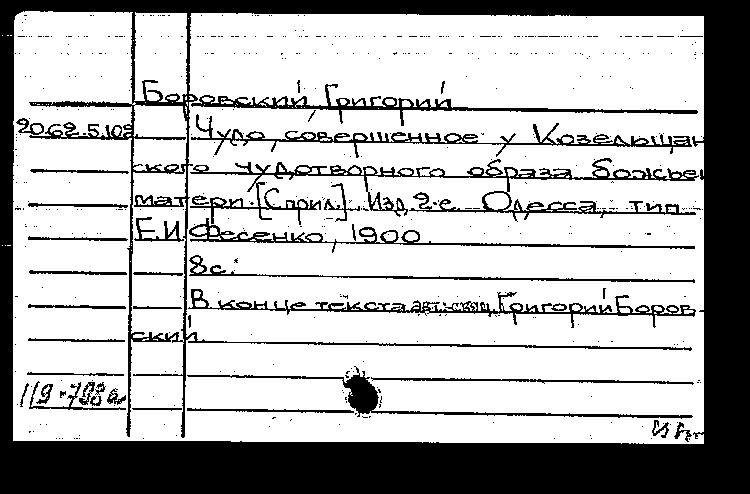 Боровский, Григорий
20.62.5.102. Чудо, совершенное у Козельщан
ского чудотворного образа Божьей
матери. [С прил.]. Изд. 2-е. Одесса, тип.
Е.И. Фесенко, 1900.
8 с.
В конце текста авт.: свящ. Григорий Боров-
ский.
119-798а